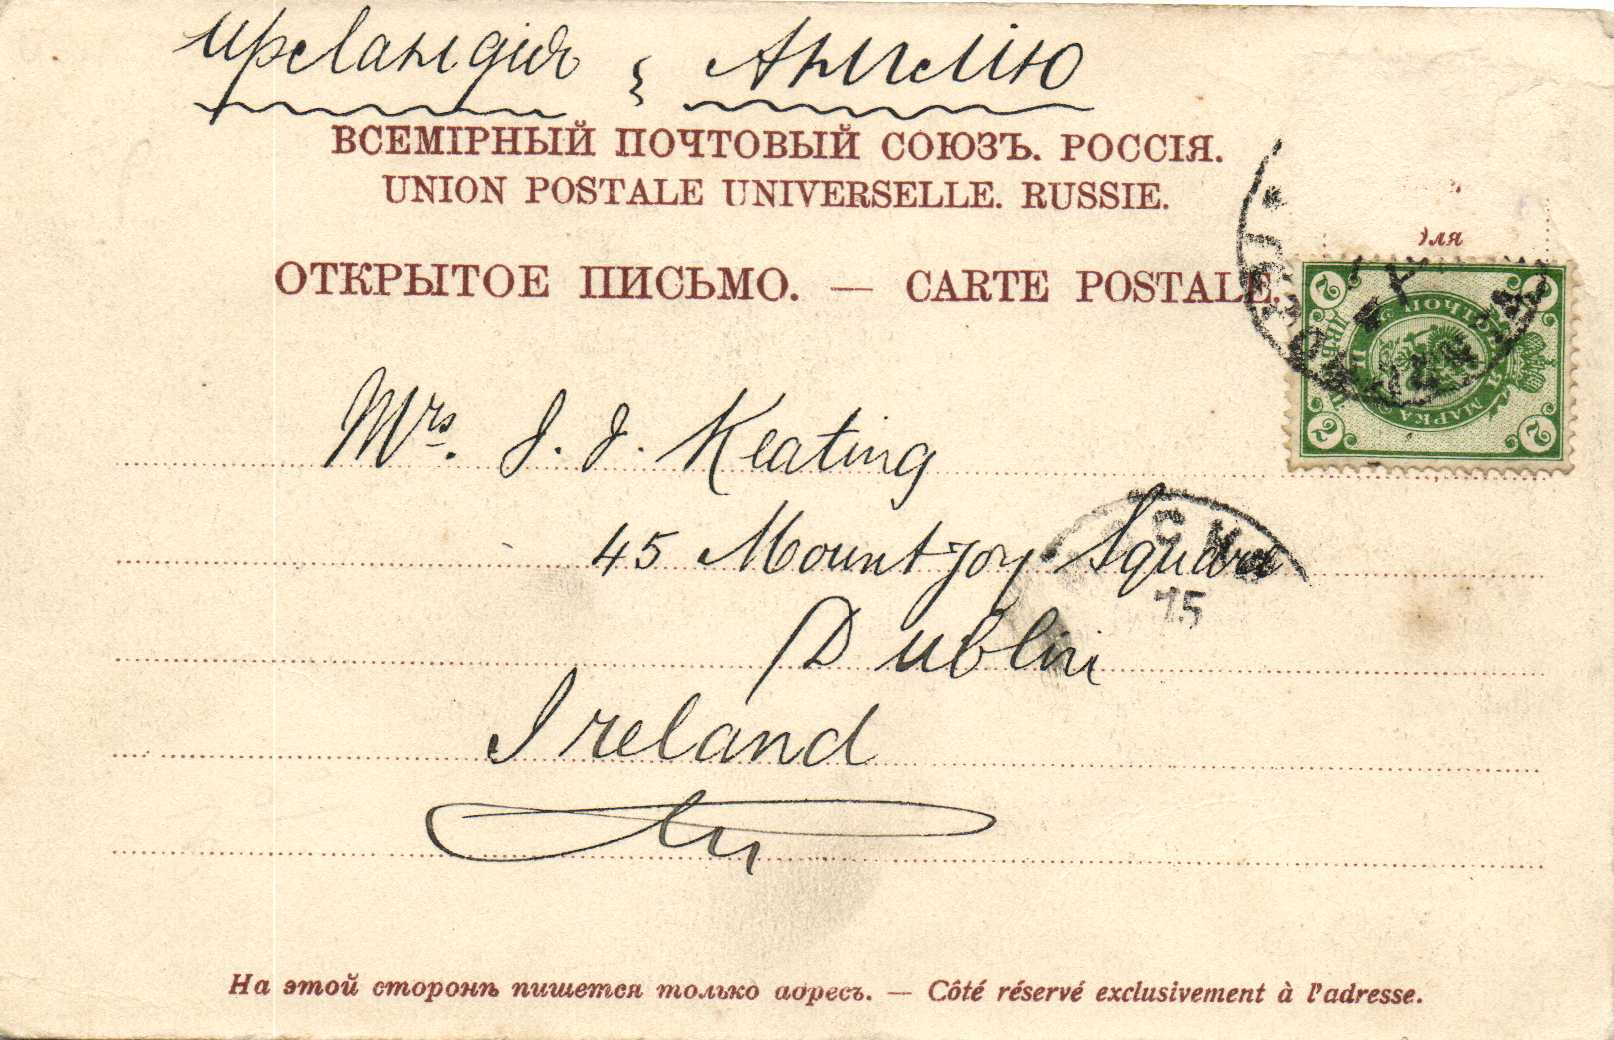 Ирландія Англію
ВСЕМІРНЫЙ ПОЧТОВЫЙ СОЮЗЪ. РОССІЯ.
UNION POSTALE UNIVERSELLE. RUSSIE.
для
ОТКРЫТОЕ ПИСЬМО. — CARTE POSTALE.
2 2
МАРКА
2 2
Mrs. J. J. Keating
45 Mountjoy Square
15
Dublin
Ireland
На этой сторонѣ пишется только адресъ. — Côté réservé exclusivement à l'adresse.